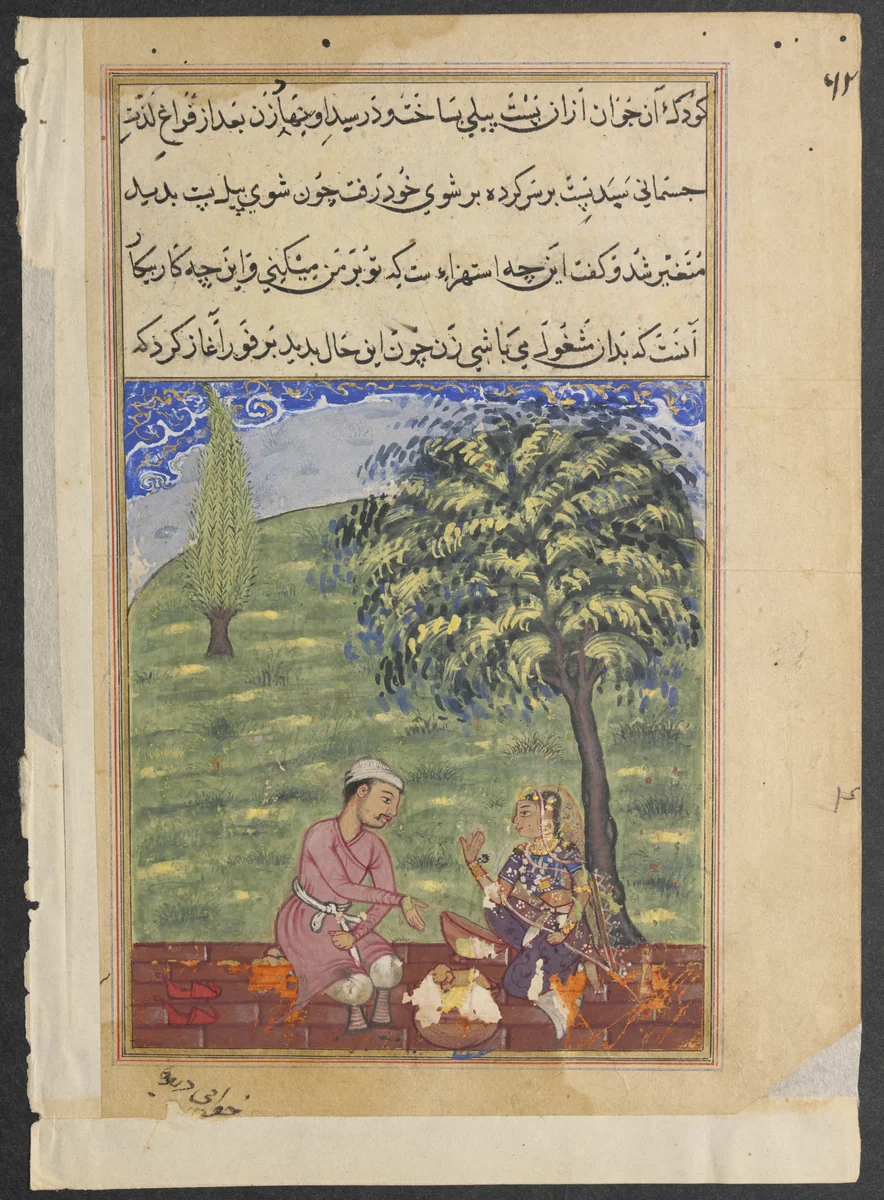 ۶۲
کودک آن جوان ازان پست پیلی ساخت و در سبد او بنهاد زن بعد از فراغ لذت
جسمانی سبد پست بر سر کرده بر شوی خود رفت چون شوی پیل پست بدید
متغیر شد و گفت این چه استهزاء ست که تو بر من میکنی و این چه کار بیکا
آنست که بدان مشغول می باشی زن چون این حال بدید بر فور آغاز کرد که
خوامی دیدم